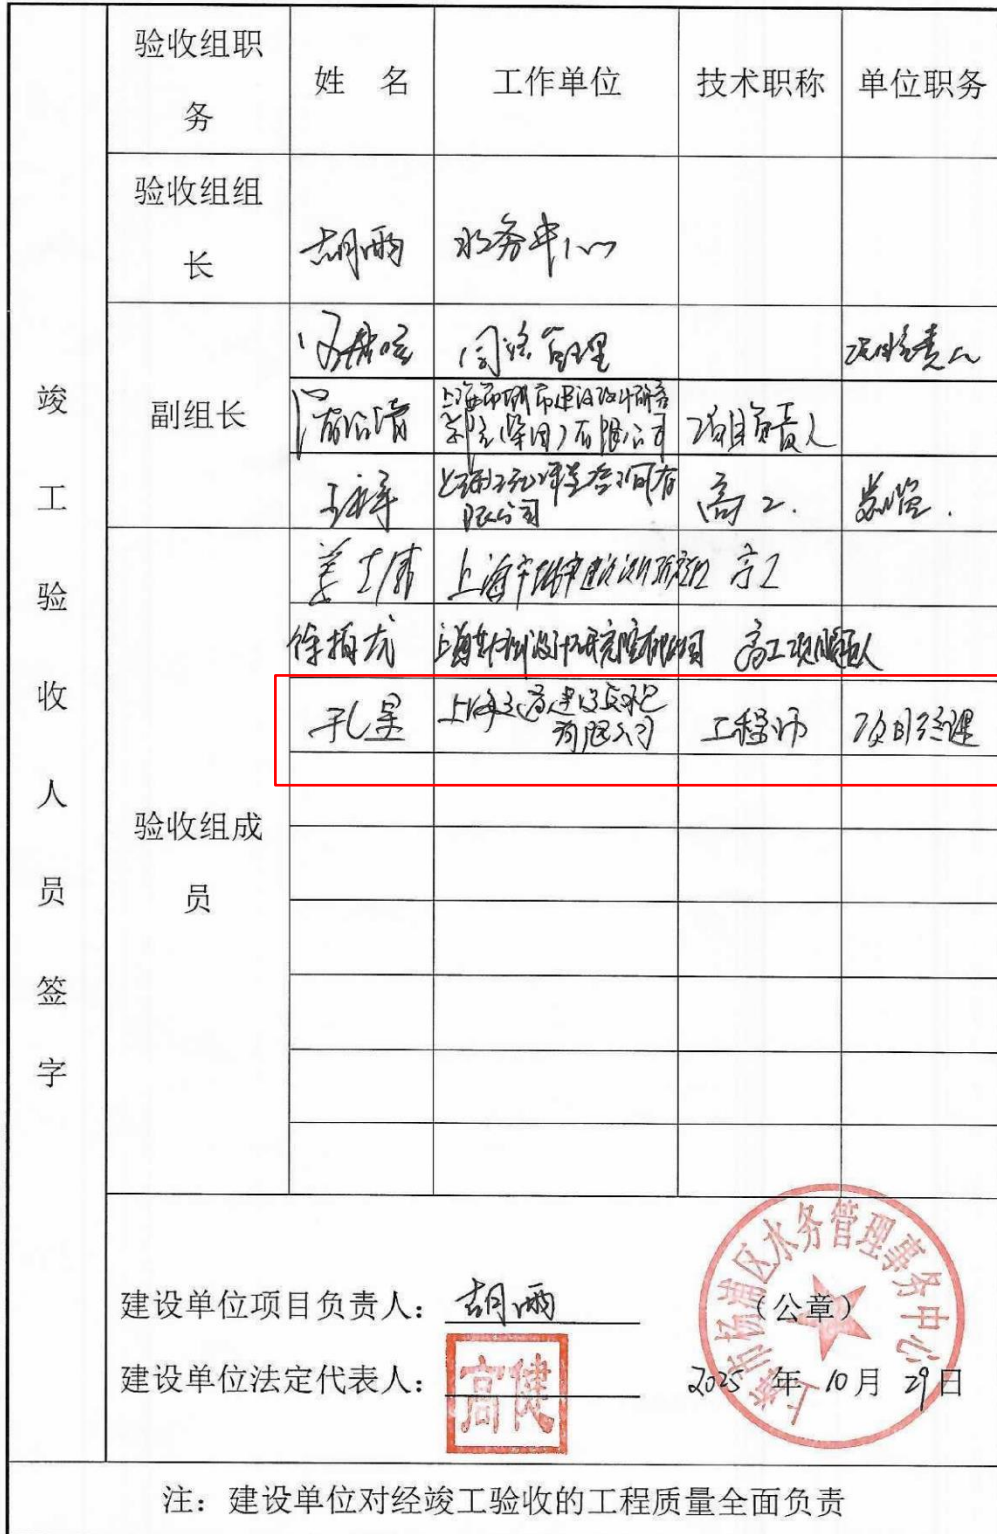 竣工验收人员签字
验收组职务 姓 名 工作单位 技术职称 单位职务
验收组组长 胡雨 水务中心
副组长
管理 项目负责人
上海市城市建设设计研究总院(集团)有限公司 项目负责人
有限公司 高工. 总监.
验收组成员
姜 上海市城市建设设计研究总院 高工
徐 设计研究院有限公司 高工 项目负责人
孔星 上海 建设 有限公司 工程师 项目经理
建设单位项目负责人: 胡雨
建设单位法定代表人: 高健
(公章)
上海市杨浦区水务管理事务中心
2025 年 10 月 29 日
注: 建设单位对经竣工验收的工程质量全面负责